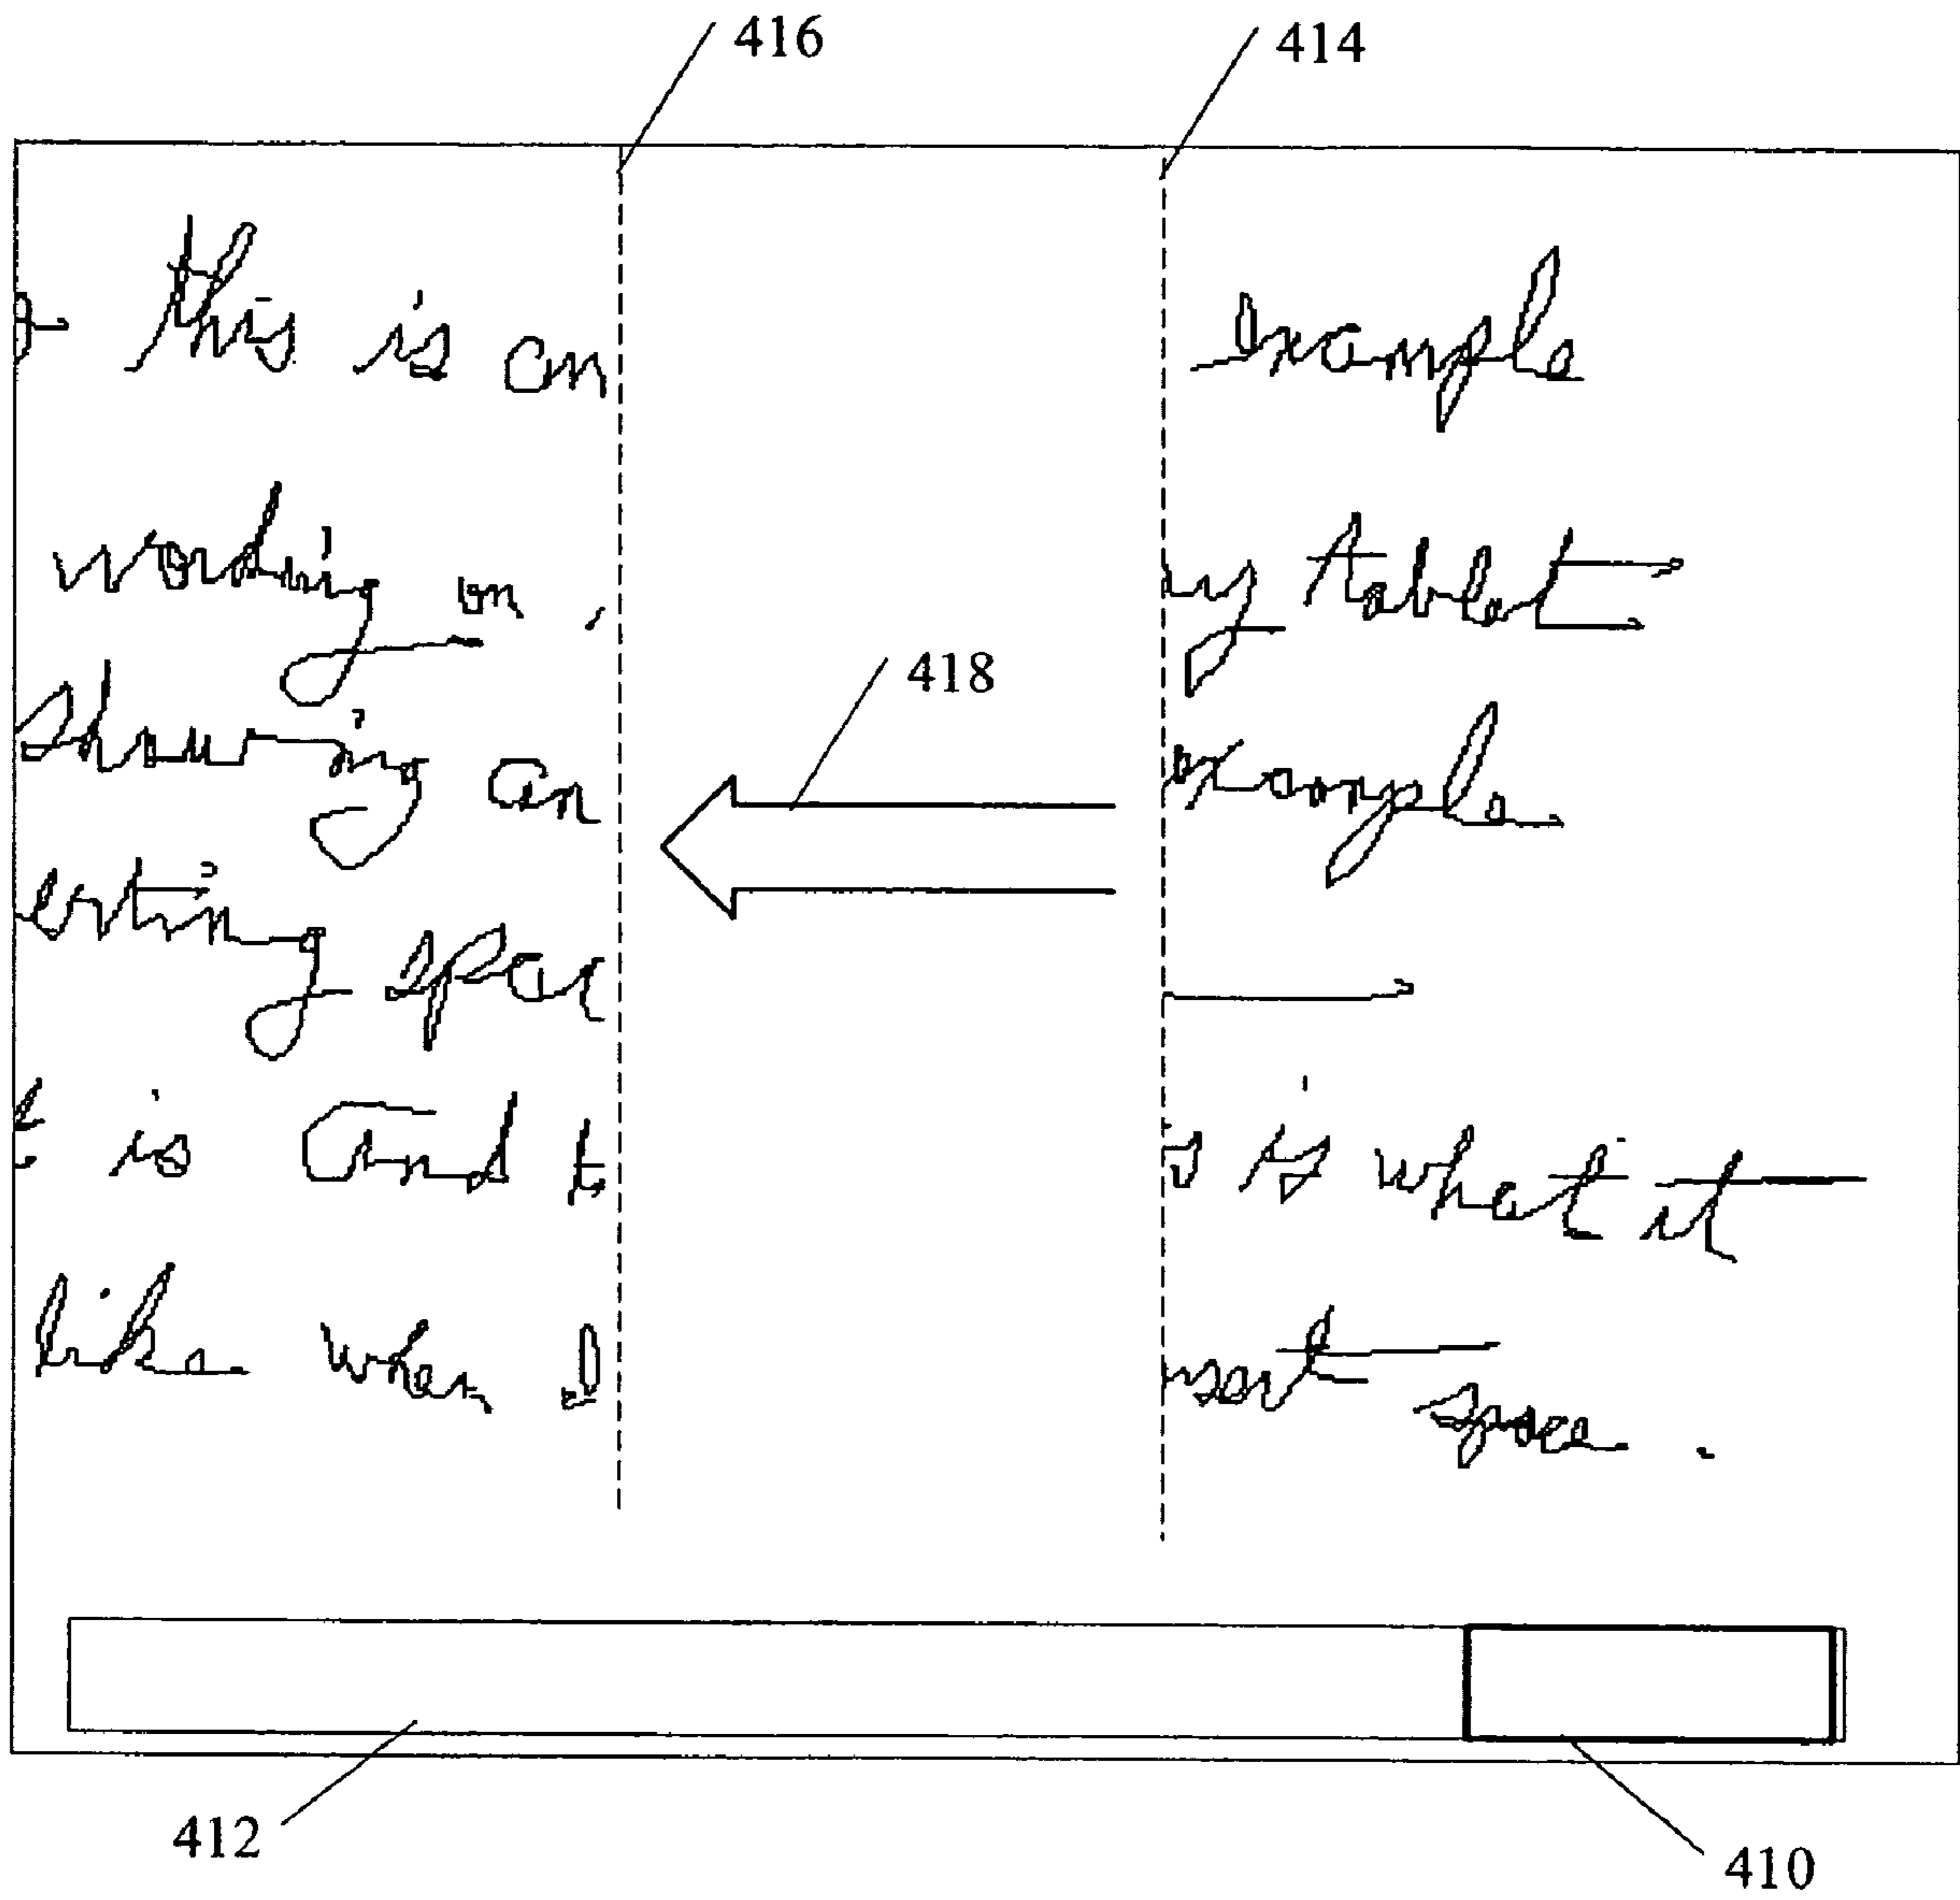 416 414
this is an example
working on tablet
showing an example
418
erting spac
is and t is is what it
like when nsert space.
412 410